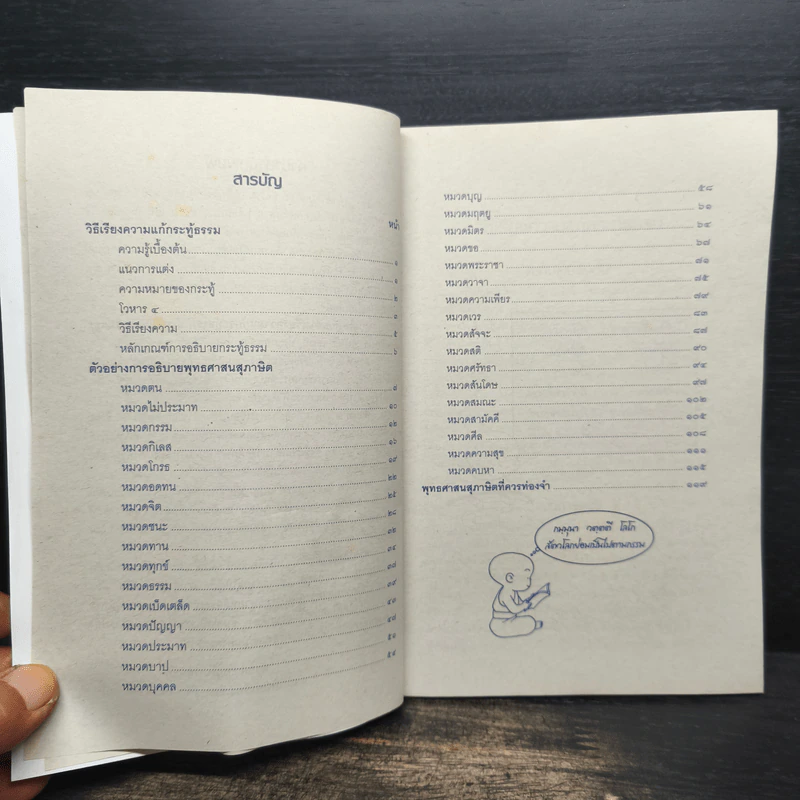 สารบัญ
หน้า
วิธีเรียงความแก้กระทู้ธรรม
ความรู้เบื้องต้น ๑
แนวการแต่ง ๑
ความหมายของกระทู้ ๒
โวหาร ๔ ๓
วิธีเรียงความ ๕
หลักเกณฑ์การอธิบายกระทู้ธรรม ๖
ตัวอย่างการอธิบายพุทธศาสนสุภาษิต
หมวดตน ๘
หมวดไม่ประมาท ๑๐
หมวดกรรม ๑๒
หมวดกิเลส ๑๖
หมวดโกรธ ๑๙
หมวดอดทน ๒๒
หมวดจิต ๒๕
หมวดชนะ ๒๘
หมวดทาน ๓๒
หมวดทุกข์ ๓๔
หมวดธรรม ๓๗
หมวดเบ็ดเตล็ด ๓๙
หมวดปัญญา ๔๓
หมวดประมาท ๔๗
หมวดบาป ๕๑
หมวดบุคคล ๕๔
หมวดบุญ ๕๘
หมวดมฤตยู ๖๑
หมวดมิตร ๖๔
หมวดขอ ๖๗
หมวดพระราชา ๗๑
หมวดวาจา ๗๕
หมวดความเพียร ๗๙
หมวดเวร ๘๓
หมวดสัจจะ ๘๗
หมวดสติ ๙๐
หมวดศรัทธา ๙๔
หมวดสันโดษ ๙๗
หมวดสมณะ ๑๐๒
หมวดสามัคคี ๑๐๕
หมวดศีล ๑๐๘
หมวดความสุข ๑๑๑
หมวดคบหา ๑๑๕
พุทธศาสนสุภาษิตที่ควรท่องจำ ๑๑๙
กมฺมุนา วตฺตตี โลโก
สัตว์โลกย่อมเป็นไปตามกรรม